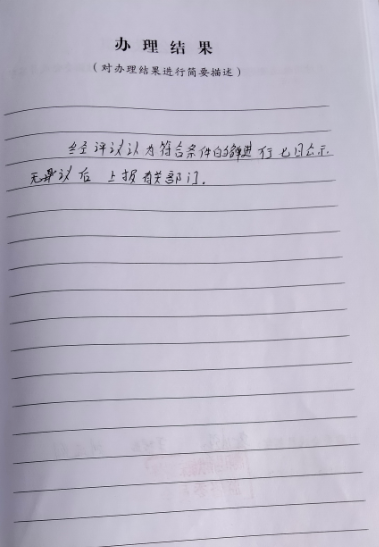 办理结果
（对办理结果进行简要描述）
经评议认为符合条件的 进行七日公示.
无异议后 上报有关部门.